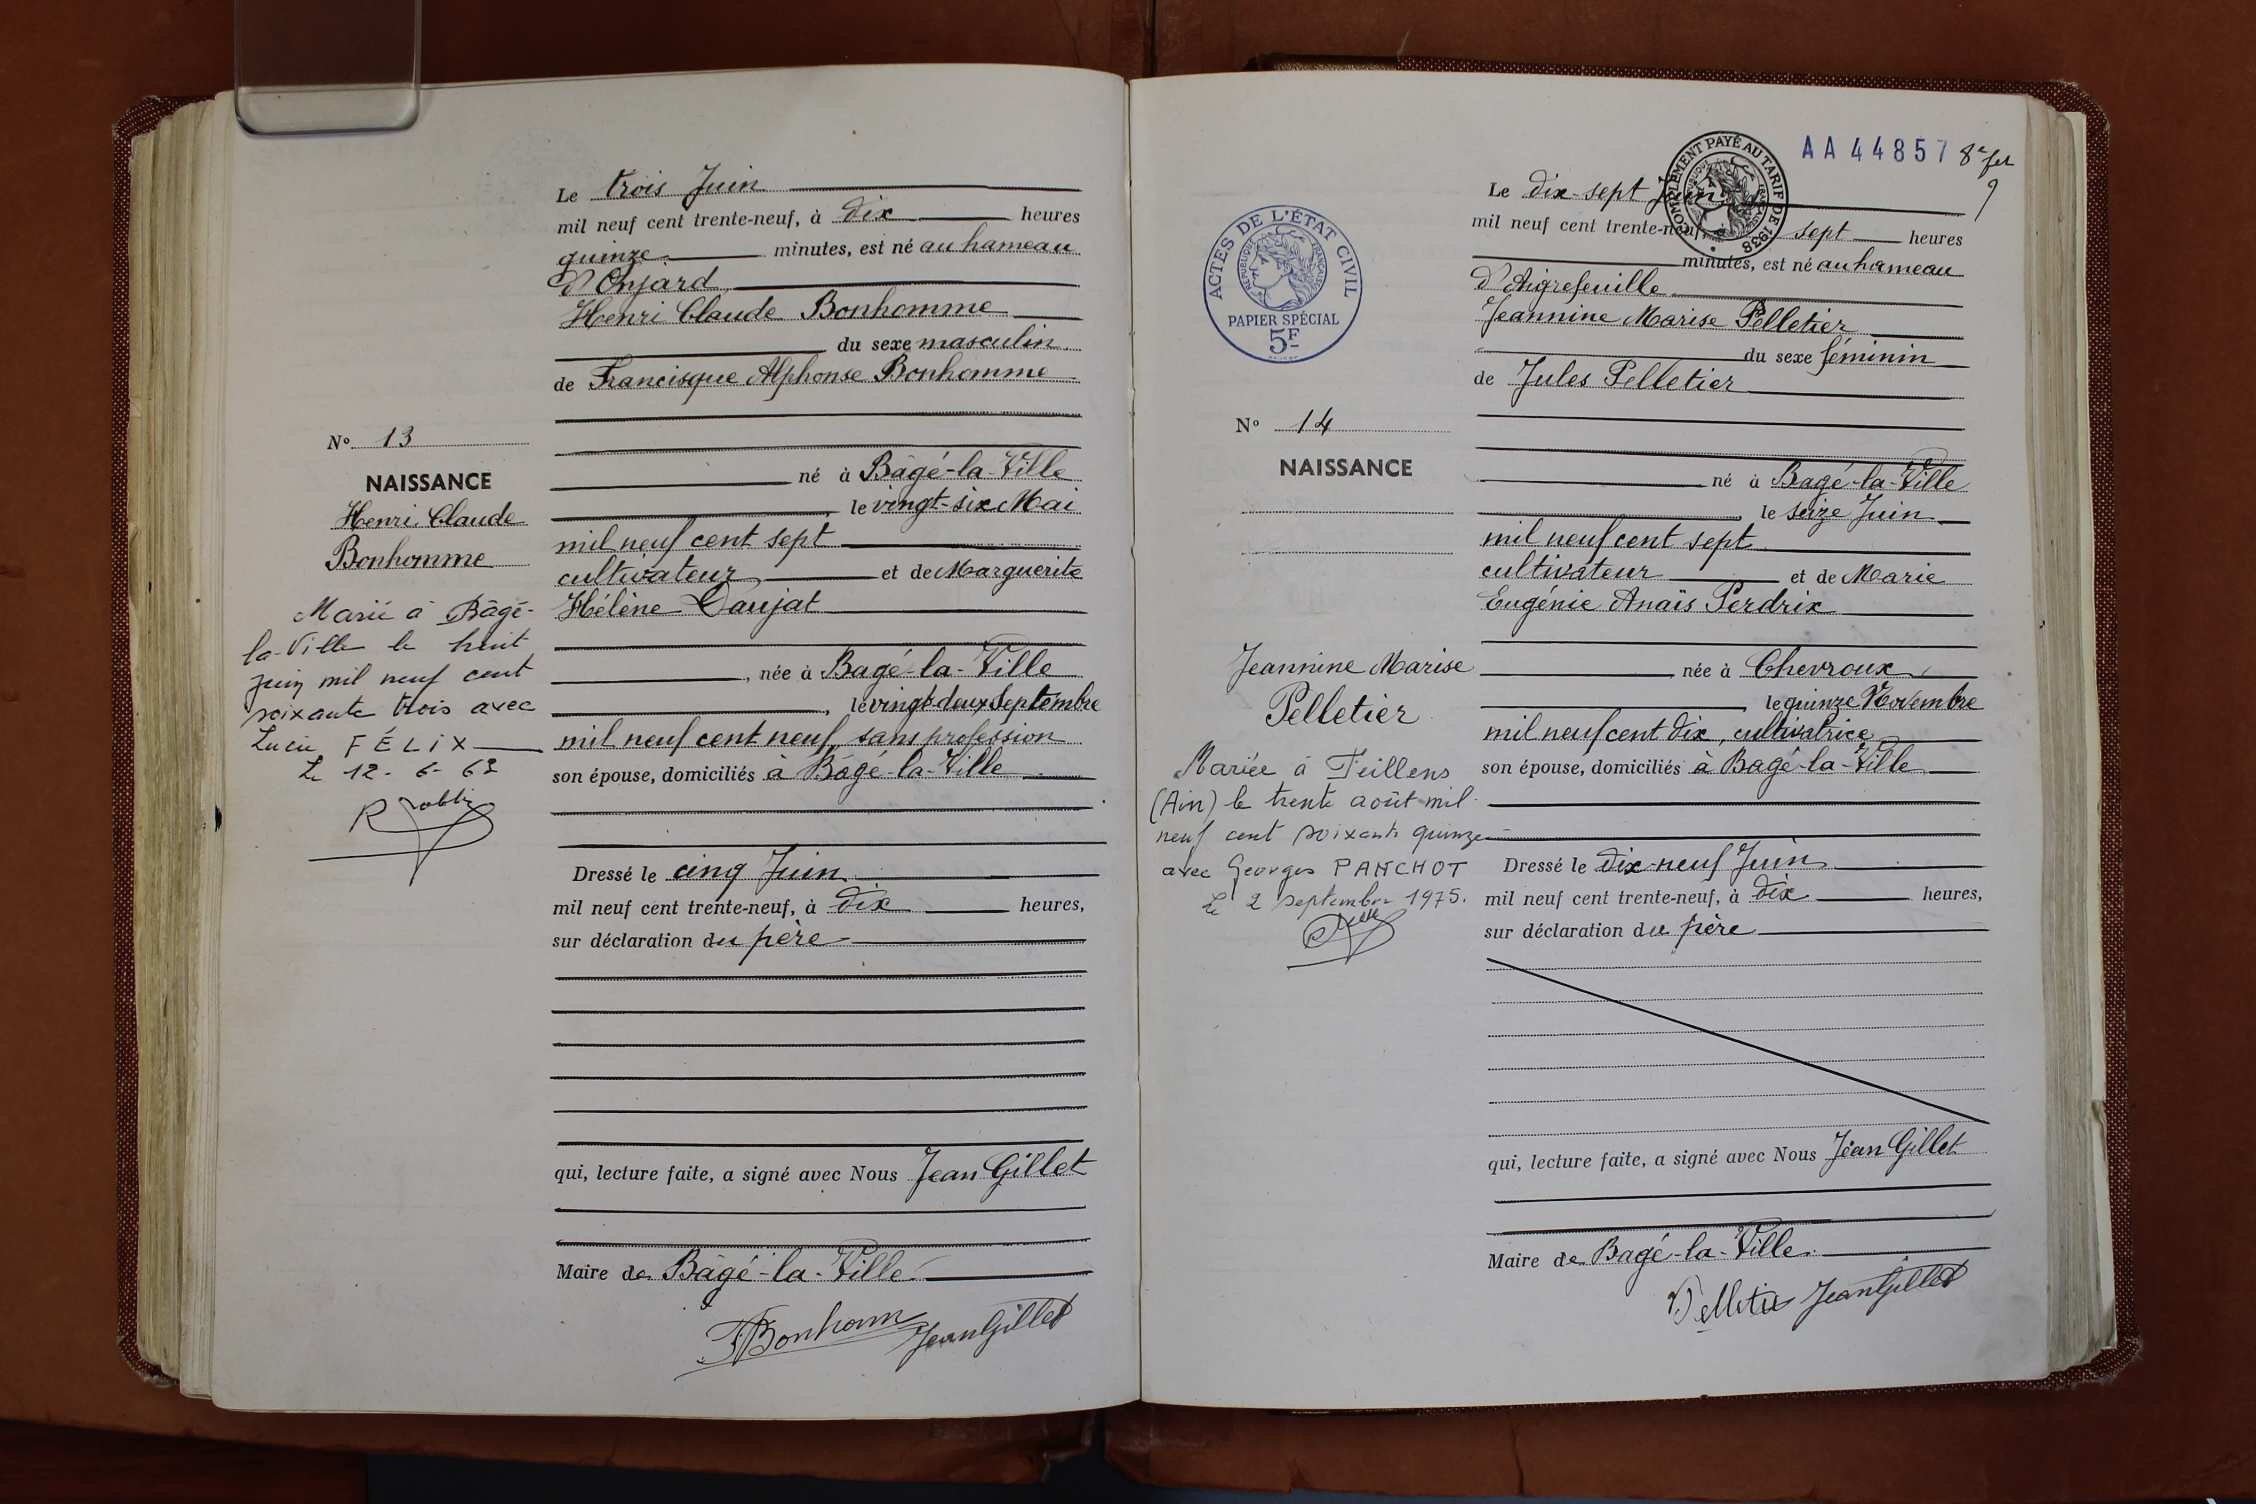 Le trois Juin
mil neuf cent trente-neuf, à dix heures
quinze minutes, est né au hameau
d'Onjard
Henri Claude Bonhomme
du sexe masculin
de Francisque Alphonse Bonhomme
né à Bâgé-la-Ville
le vingt-six Mai
mil neuf cent sept
cultivateur, et de Marguerite
Hélène Daujat
, née à Bagé-la-Ville
, le vingt-deux Septembre
mil neuf cent neuf, sans profession
son épouse, domiciliés à Bâgé-la-Ville
Dressé le cinq Juin
mil neuf cent trente-neuf, à dix heures,
sur déclaration du père
qui, lecture faite, a signé avec Nous Jean Gillet
Maire de Bâgé-la-Ville
FBonhom JeanGillet
No 13
NAISSANCE
Henri Claude
Bonhomme
Marié à Bâgé-
la-Ville le huit
juin mil neuf cent
soixante trois avec
Lucie FÉLIX
Le 12-6-63
AA 44857
COMPLÉMENT PAYÉ AU TARIF DE 1938
RÉPUBLIQUE FRANÇAISE
Le dix-sept Juin
mil neuf cent trente-neuf, à sept heures
minutes, est né au hameau
d'Aigrefeuille
Jeannine Marise Pelletier
du sexe féminin
de Jules Pelletier
né à Bagé-la-Ville
le seize Juin
mil neuf cent sept
cultivateur et de Marie
Eugénie Anaïs Perdrix
née à Chevroux,
le quinze Novembre
mil neuf cent dix, cultivatrice
son épouse, domiciliés à Bagé-la-Ville
Dressé le dix-neuf Juin
mil neuf cent trente-neuf, à dix heures,
sur déclaration du père
qui, lecture faite, a signé avec Nous Jean Gillet
Maire de Bagé-la-Ville.
Pelletier JeanGillet
ACTES DE L'ÉTAT CIVIL
RÉPUBLIQUE FRANÇAISE
PAPIER SPÉCIAL
5F
No 14
NAISSANCE
Jeannine Marise
Pelletier
Mariée à Feillens
(Ain) le trente août mil
neuf cent soixante quinze
avec Georges PANCHOT
Le 2 septembre 1975.